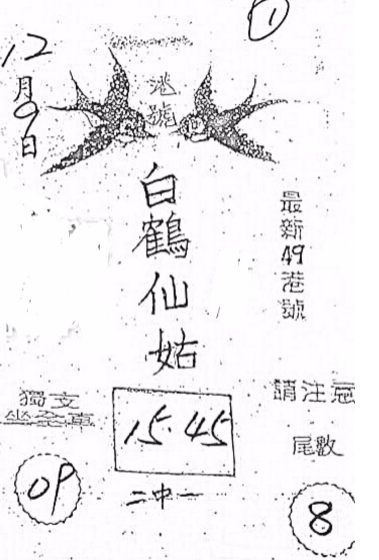 ①
12月9日
港號
白鶴仙姑
最新49港號
獨支
坐全車
09
15.45
二中一
請注意
尾數
8